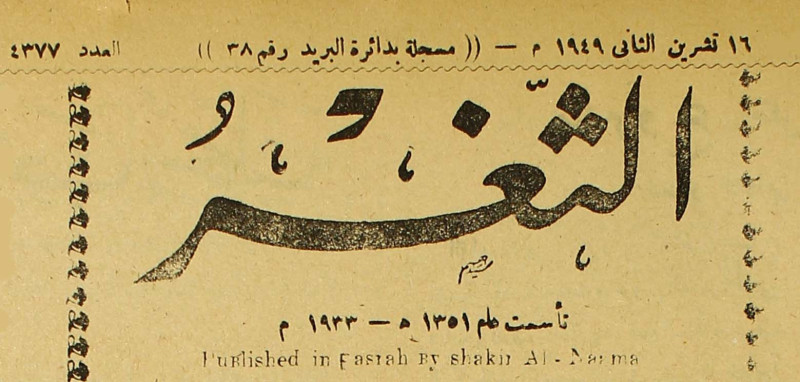 ١٦ تشرين الثانى ١٩٤٩ م — (( مسجلة بدائرة البريد رقم ٣٨ )) العدد ٤٣٧٧
الثَّغرُ
تأسست عام ١٣٥١ ه — ١٩٣٣ م
Published in Basrah By shakir Al - Naema